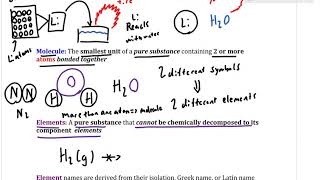 Li
Li
Li
H2O
Li atoms
Reacts
with water
Molecule: The smallest unit of a pure substance containing 2 or more
atoms bonded together
O
N N H H
N2
H2O
2 different symbols
⇓
2 different elements
more than one atom → molecule
Elements: A pure substance that cannot be chemically decomposed to its
component elements
H2(g)
Element names are derived from their isolation, Greek name, or Latin name